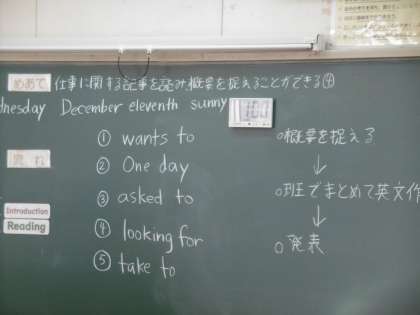 めあて 仕事に関する記事を読み概要を捉えることができる④
nesday December eleventh sunny
① wants to
② One day
③ asked to
④ looking for
⑤ take to
流れ
Introduction
Reading
○概要を捉える
↓
○班でまとめて英文作
↓
○発表